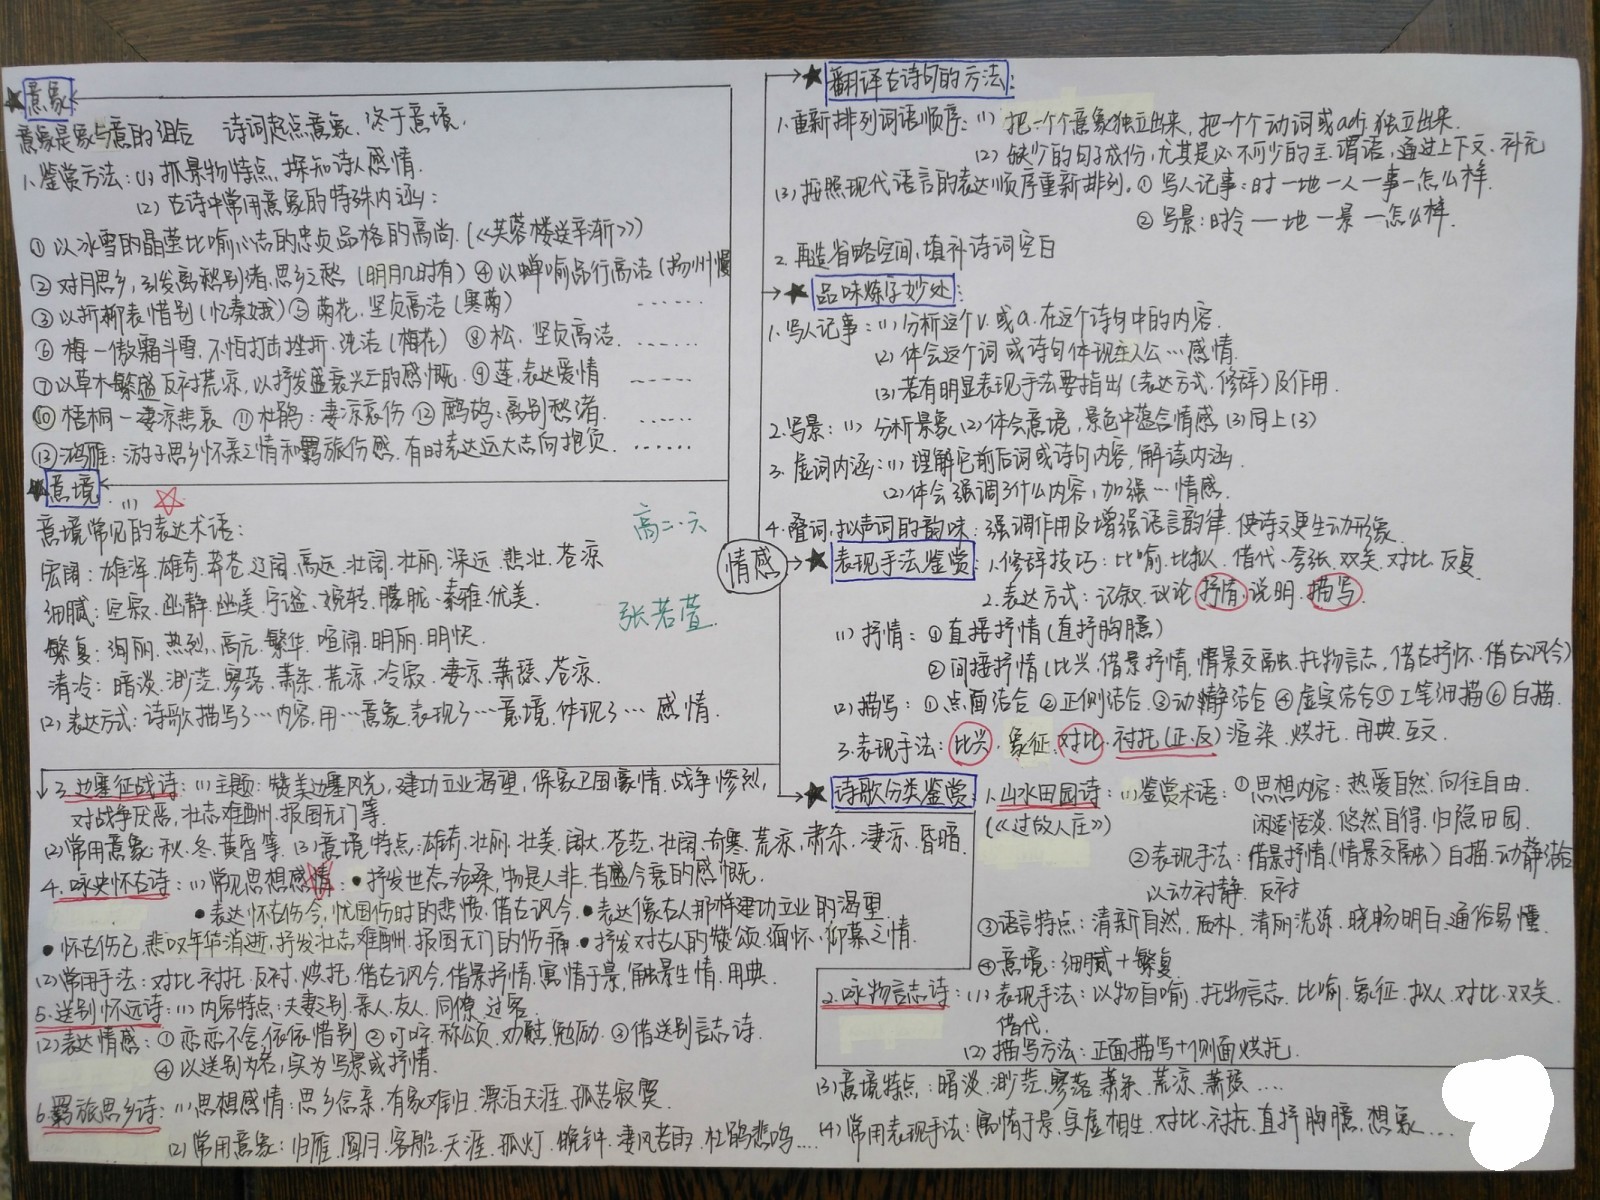 ★意象
意象是象与意的组合 诗词起点意象、终于意境.
1.鉴赏方法:(1) 抓景物特点,探知诗人感情.
(2) 古诗中常用意象的特殊内涵:
① 以冰雪的晶莹比喻心志的忠贞品格的高尚.(《芙蓉楼送辛渐》)
② 对月思乡,引发离愁别绪,思乡之愁 (明月几时有) ④ 以蝉喻品行高洁 (扬州慢
③ 以折柳表惜别 (忆秦娥) ⑤ 菊花、坚贞高洁 (寒菊) ……
⑥ 梅—傲霜斗雪、不怕打击挫折、纯洁 (梅花) ⑧ 松、坚贞高洁. ……
⑦ 以草木繁盛反衬荒凉,以抒发盛衰兴亡的感慨. ⑨ 莲、表达爱情 ……
⑩ 梧桐—凄凉悲哀 ⑪ 杜鹃:凄凉哀伤 ⑫ 鹧鸪:离别愁绪. ……
⑬ 鸿雁:游子思乡怀亲之情和羁旅伤感,有时表达远大志向抱负. ……
★意境
(1) ☆
意境常见的表达术语:
宏阔:雄浑、雄奇、莽苍、辽阔、高远、壮阔、壮丽、深远、悲壮、苍凉
细腻:空寂、幽静、幽美、宁谧、婉转、朦胧、素雅、优美.
繁复:绚丽、热烈、高亢、繁华、喧闹、明丽、明快.
清冷:暗淡、渺茫、寥落、萧条、荒凉、冷寂、凄凉、萧瑟、苍凉.
(2) 表达方式:诗歌描写了…内容,用…意象、表现了…意境、体现了…感情.
高二·六
张若萱
情感
★翻译古诗句的方法:
1.重新排列词语顺序:(1) 把一个个意象独立出来,把一个个动词或adj.独立出来.
(2) 缺少的句子成份,尤其是必不可少的主、谓语,通过上下文、补充
(3) 按照现代语言的表达顺序重新排列。① 写人记事:时—地—人—事—怎么样.
② 写景:时令—地—景—怎么样.
2.再造省略空间,填补诗词空白
★品味炼字妙处:
1.写人记事:(1) 分析这个v.或a.在这个诗句中的内容.
(2) 体会这个词或诗句体现主人公…感情.
(3) 若有明显表现手法要指出(表达方式、修辞)及作用.
2.写景:(1) 分析景象 (2) 体会意境,景色中蕴含情感 (3) 同上(3)
3.虚词内涵:(1) 理解它前后词或诗句内容,解读内涵.
(2) 体会强调了什么内容,加强…情感.
4.叠词、拟声词的韵味:强调作用及增强语言韵律、使诗文更生动形象.
★表现手法鉴赏:1.修辞技巧:比喻、比拟、借代、夸张、双关、对比、反复.
2.表达方式:记叙、议论、抒情、说明、描写.
(1) 抒情:①直接抒情(直抒胸臆)
②间接抒情(比兴、借景抒情、情景交融、托物言志、借古抒怀、借古讽今)
(2) 描写:①点面结合 ②正侧结合 ③动静结合 ④虚实结合 ⑤工笔细描 ⑥白描.
3.表现手法:比兴、象征、对比、衬托(正、反)渲染、烘托、用典、互文.
★诗歌分类鉴赏
1.山水田园诗:(1)鉴赏术语:①思想内容:热爱自然、向往自由.
(《过故人庄》) 闲适恬淡、悠然自得、归隐田园.
②表现手法:借景抒情(情景交融)白描、动静结合
以动衬静、反衬
③语言特点:清新自然、质朴、清丽洗练、晓畅明白、通俗易懂.
④意境:细腻+繁复.
2.咏物言志诗:(1) 表现手法:以物自喻、托物言志、比喻、象征、拟人、对比、双关.
借代.
(2) 描写方法:正面描写+侧面烘托.
3.边塞征战诗:(1) 主题:赞美边塞风光,建功立业渴望,保家卫国豪情、战争惨烈,
对战争厌恶,壮志难酬、报国无门等.
(2) 常用意象:秋、冬、黄昏等. (3) 意境特点:雄奇、壮丽、壮美、阔大、苍茫、壮阔、奇寒、荒凉、肃杀、凄凉、昏暗.
4.咏史怀古诗:(1)常见思想感情:•抒发世态沧桑,物是人非、昔盛今衰的感慨.
•表达怀古伤今,忧国伤时的悲愤、借古讽今. •表达像古人那样建功立业的渴望.
•怀古伤己,悲叹年华消逝,抒发壮志难酬、报国无门的伤痛. •抒发对古人的赞颂、缅怀、仰慕之情.
(2)常用手法:对比、衬托、反衬、烘托、借古讽今、借景抒情、寓情于景、触景生情、用典.
5.送别怀远诗:(1)内容特点:夫妻之别、亲人、友人、同僚、过客.
(2)表达情感:①恋恋不舍、依依惜别 ②叮咛、称颂、劝慰、勉励. ③借送别言志诗.
④以送别为名,实为写景或抒情.
6.羁旅思乡诗:(1)思想感情:思乡念亲、有家难归、漂泊天涯、孤苦寂寞.
(2)常用意象:归雁、圆月、客船、天涯、孤灯、晚钟、凄风苦雨、杜鹃悲鸣…
(3) 意境特点:暗淡、渺茫、寥落、萧条、荒凉、萧瑟….
(4) 常用表现手法:寓情于景、实虚相生、对比、衬托、直抒胸臆、想象…